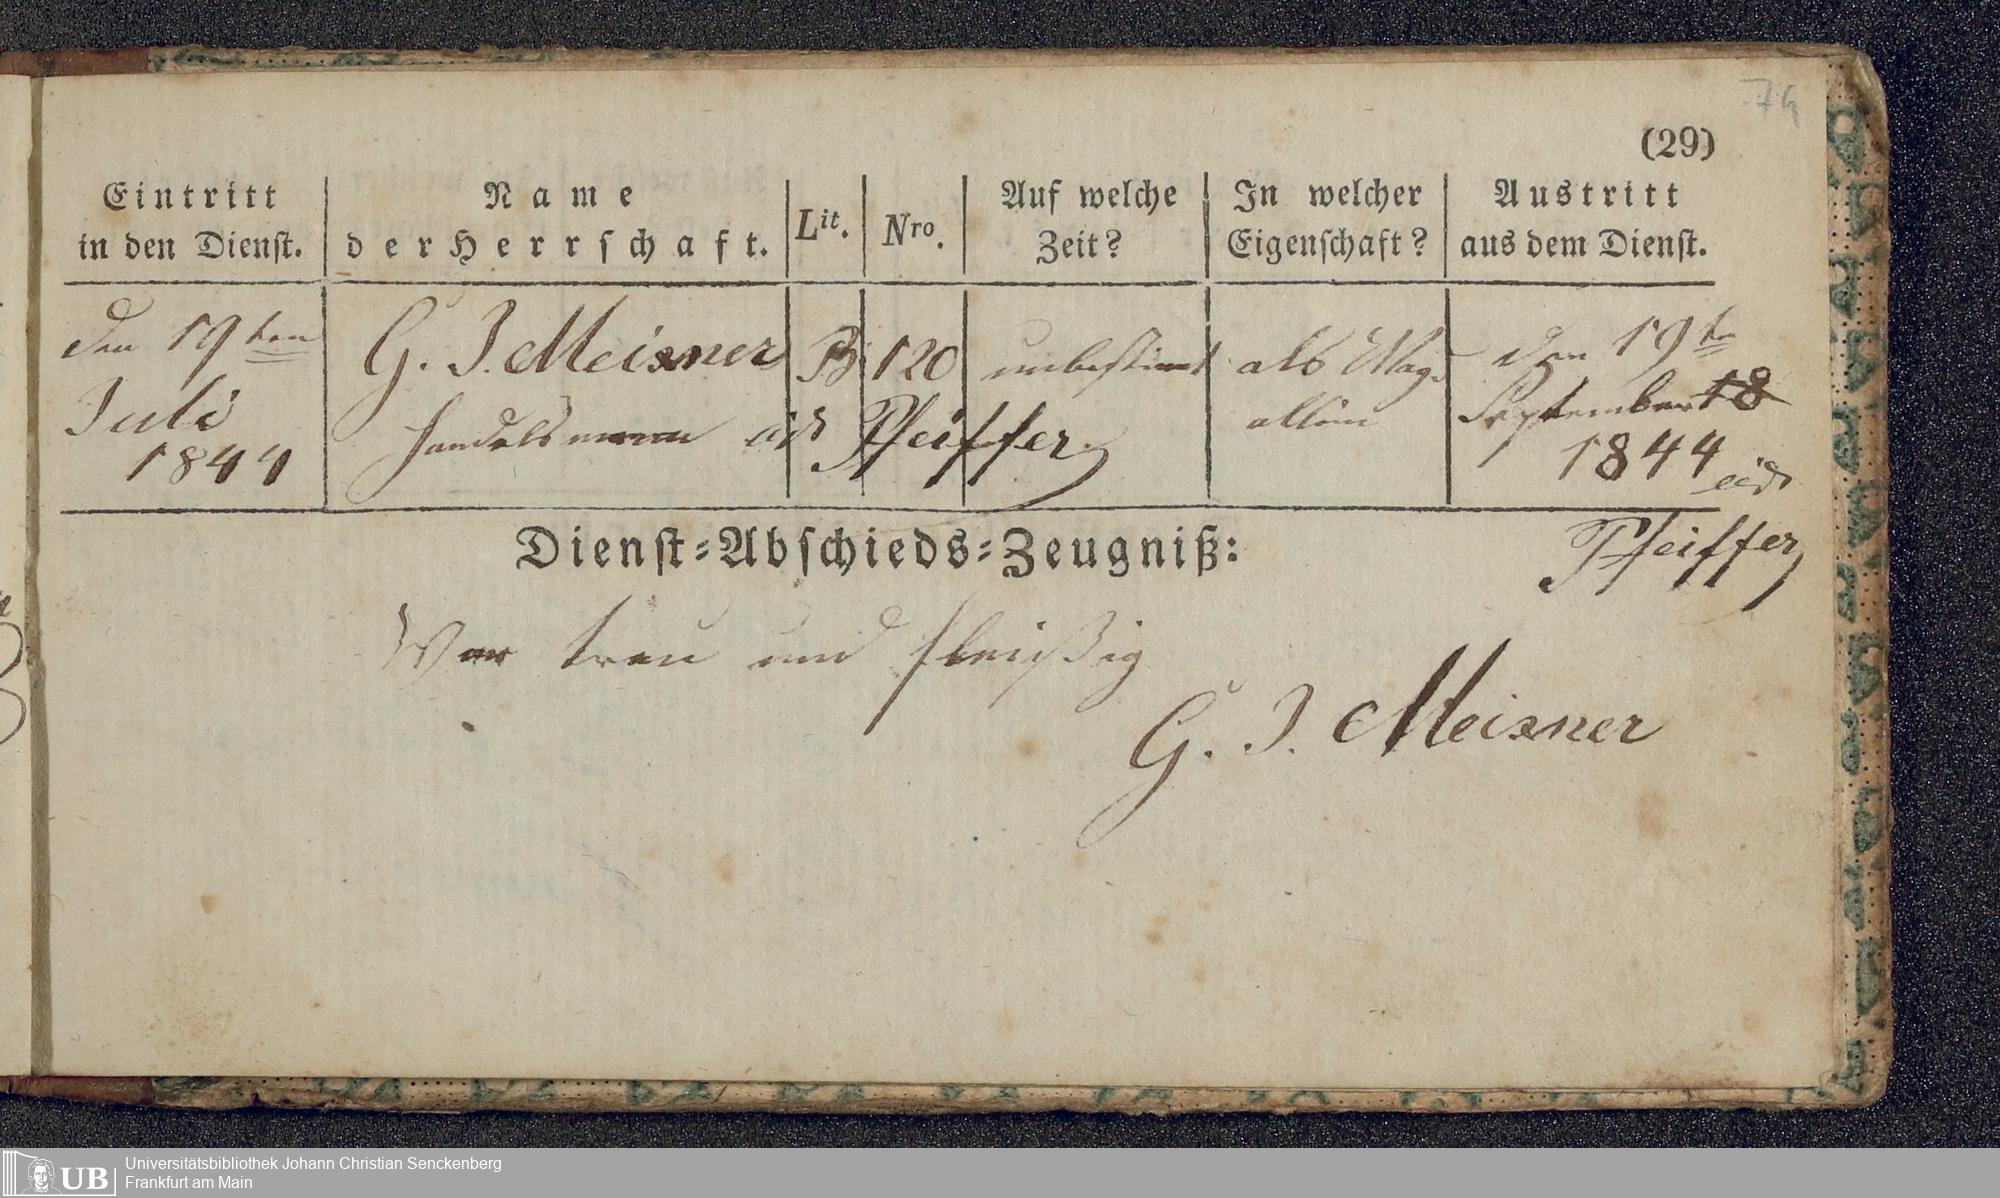 74
(29)
Eintritt
in den Dienſt.
Name
der Herrſchaft.
Lit.
Nro.
Auf welche
Zeit?
In welcher
Eigenſchaft?
Austritt
aus dem Dienſt.
den 19ten
Juli
1844
G. J. Meixner
Handelsmann
B
120
Pfeiffer
unbestimt
als Magd
allein
den 19ten
September 18
1844
Pfeiffer
Dienſt-Abſchieds-Zeugniß:
War treu und fleißig
G. J. Meixner
UB
Universitätsbibliothek Johann Christian Senckenberg
Frankfurt am Main